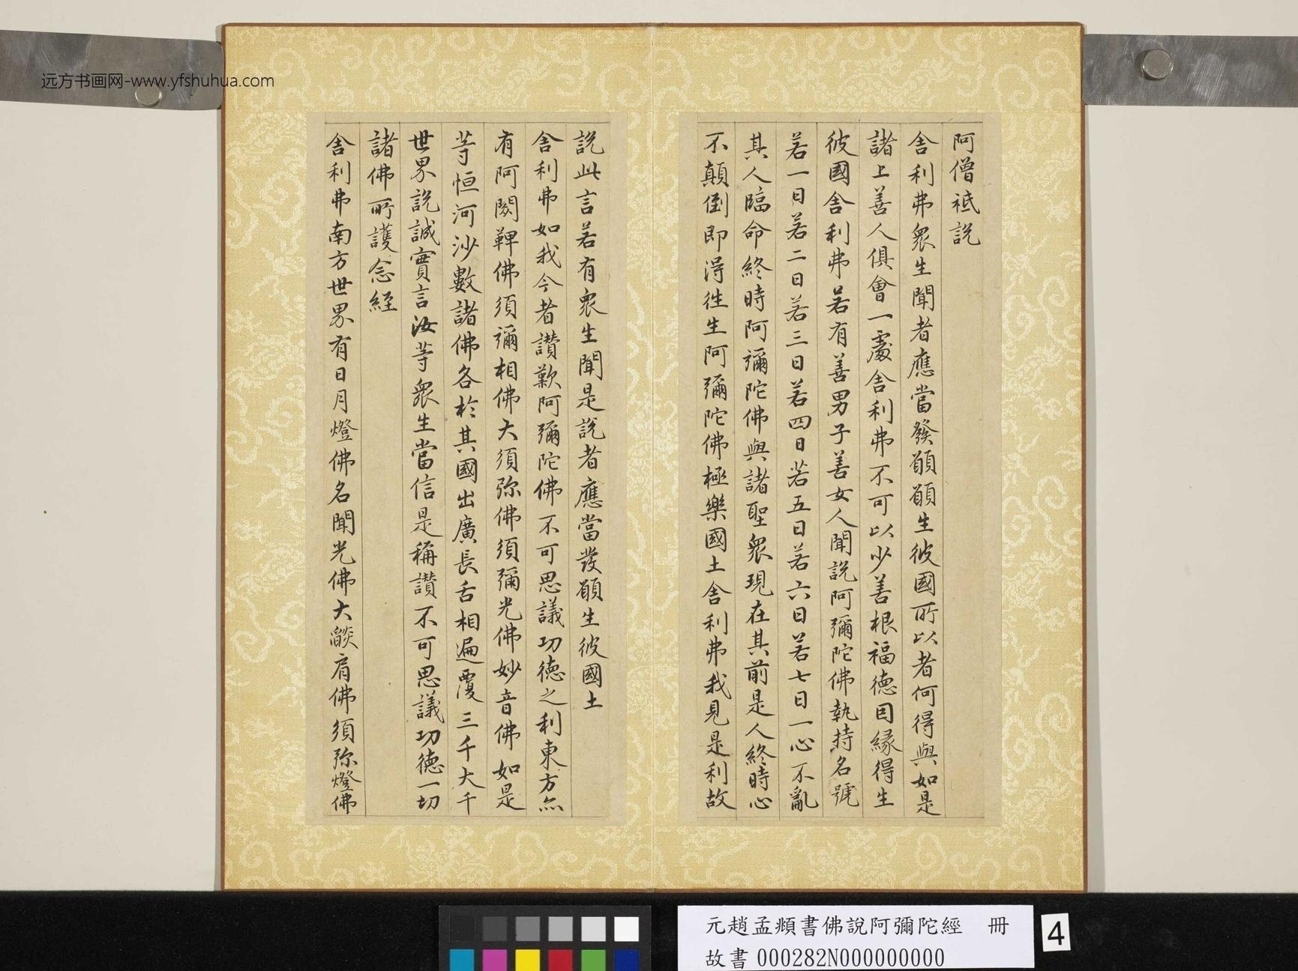 远方书画网-www.yfshuhua.com
阿僧祇說
舍利弗衆生聞者應當發願願生彼國所以者何得與如是
諸上善人俱會一處舍利弗不可以少善根福德因緣得生
彼國舍利弗若有善男子善女人聞說阿彌陀佛執持名號
若一日若二日若三日若四日若五日若六日若七日一心不亂
其人臨命終時阿彌陀佛與諸聖衆現在其前是人終時心
不顛倒即得往生阿彌陀佛極樂國土舍利弗我見是利故
說此言若有衆生聞是說者應當發願生彼國土
舍利弗如我今者讚歎阿彌陀佛不可思議功德之利東方亦
有阿閦鞞佛須彌相佛大須弥佛須彌光佛妙音佛如是
等恒河沙數諸佛各於其國出廣長舌相遍覆三千大千
世界說誠實言汝等衆生當信是稱讚不可思議功德一切
諸佛所護念經
舍利弗南方世界有日月燈佛名聞光佛大燄肩佛須弥燈佛
元趙孟頫書佛說阿彌陀經 冊
故書 000282N000000000
4